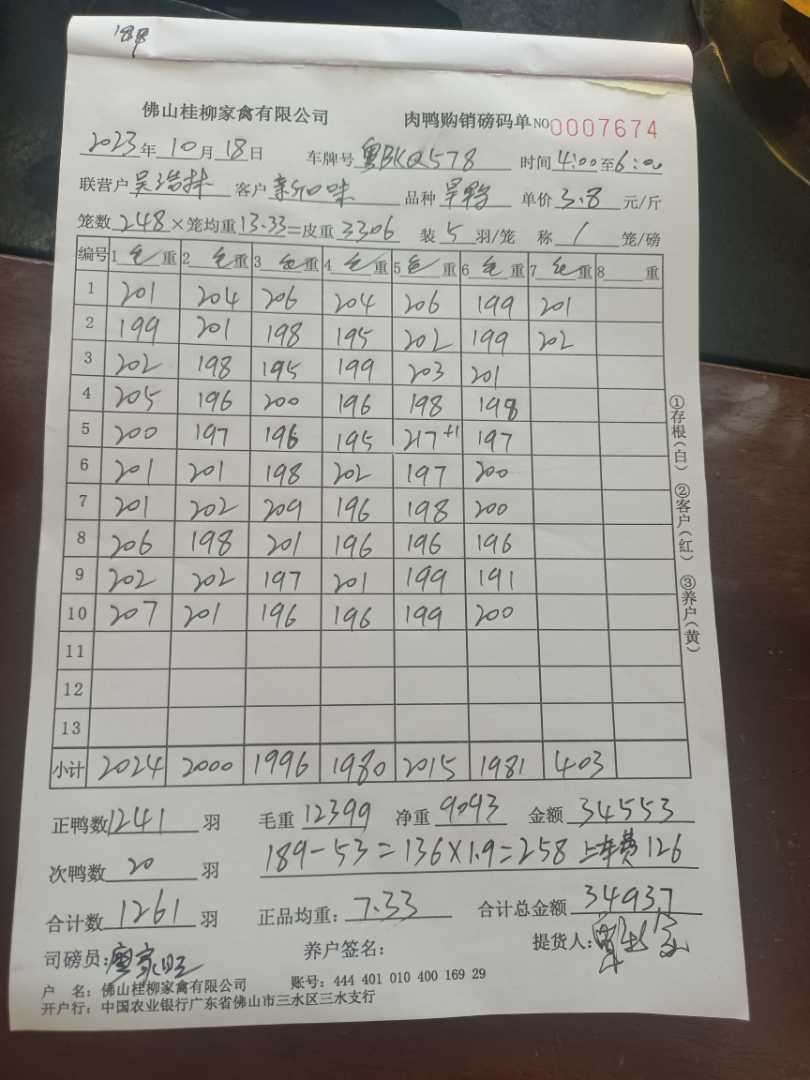 189
佛山桂柳家禽有限公司 肉鸭购销磅码单 NO 0007674
2023年10月18日 车牌号 粤BKQ578 时间 4:00至6:00
联营户 吴浩林 客户 新口味 品种 旱鸭 单价 3.8 元/斤
笼数 248×笼均重 13.33=皮重 3306 装 5 羽/笼 称 1 笼/磅
编号 1 毛 重 2 毛 重 3 毛 重 4 毛 重 5 毛 重 6 毛 重 7 毛 重 8 重
1 201 204 206 204 206 199 201
2 199 201 198 195 202 199 202
3 202 198 195 199 203 201
4 205 196 200 196 198 198
5 200 197 196 195 217+1 197
6 201 201 198 202 197 200
7 201 202 209 196 198 200
8 206 198 201 196 196 196
9 202 202 197 201 199 191
10 207 201 196 196 199 200
11
12
13
小计 2024 2000 1996 1980 2015 1981 403
①存根(白) ②客户(红) ③养户(黄)
正鸭数 1241 羽 毛重 12399 净重 9093 金额 34553
次鸭数 20 羽 189-53=136×1.9=258 上车费 126
合计数 1261 羽 正品均重: 7.33 合计总金额 34937
司磅员: 廖家旺 养户签名: 提货人:
户 名: 佛山桂柳家禽有限公司 账号: 444 401 010 400 169 29
开户行: 中国农业银行广东省佛山市三水区三水支行